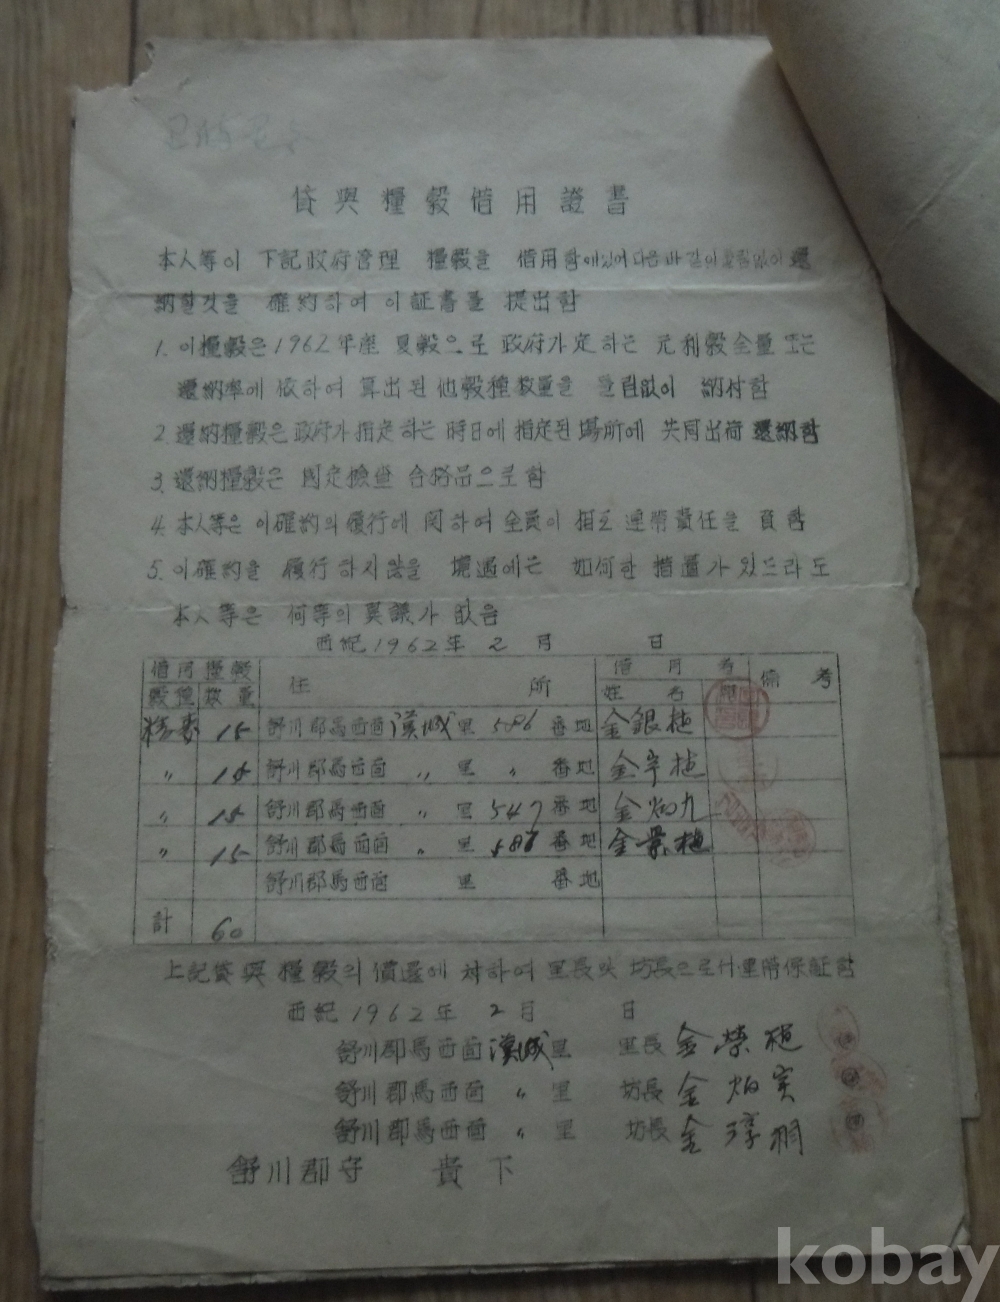 貸與糧穀借用證書
本人等이 下記政府管理 糧穀을 借用함에있어다음바같이틀림없이還
納할것을 確約하여 이証書를 提出함
1. 이糧穀은1962年産 夏穀으로 政府가定하는 元利穀全量또는
還納率에 依하여 算出된他穀種数量을 틀림없이 納付함
2. 還納糧穀은政府가指定하는時日에指定된場所에 共同出荷還納함
3. 還納糧穀은 国定檢査 合格品으로함
4. 本人等은 이確約의履行에関하여全員이 相互連帶責任을 負함
5. 이確約을 履行하지않을 境遇에는 如何한措置가있드라도
本人等은 何等의異議가없음
西紀1962年 2月 日
借用糧穀 住 所 借用者 備考
穀種 数量 姓名
15 舒川郡馬西面漢城里586番地 金銀植
〃 15 舒川郡馬西面 〃 里 〃 番地 金宇植
〃 15 舒川郡馬西面 〃 里547番地 金炳九
〃 15 舒川郡馬西面 〃 里 番地 金業植
舒川郡馬西面 里 番地
計 60
上記貸與糧穀의償還에対하여里長및坊長으로서連帶保証함
西紀1962年 2月 日
舒川郡馬西面漢城里 里長 金榮植
舒川郡馬西面 〃 里 坊長 金炳実
舒川郡馬西面 〃 里 坊長 金
舒川郡守 貴下
kobay